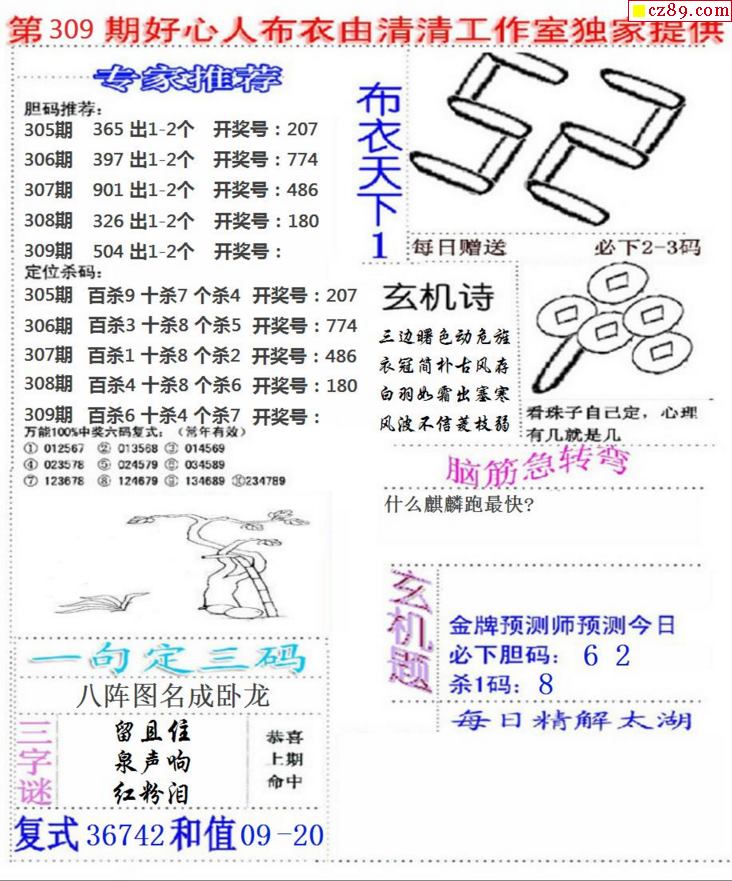 cz89.com
第 309 期好心人布衣由清清工作室独家提供
专家推荐
胆码推荐:
305期 365 出1-2个 开奖号：207
306期 397 出1-2个 开奖号：774
307期 901 出1-2个 开奖号：486
308期 326 出1-2个 开奖号：180
309期 504 出1-2个 开奖号：
定位杀码:
305期 百杀9 十杀7 个杀4 开奖号：207
306期 百杀3 十杀8 个杀5 开奖号：774
307期 百杀1 十杀8 个杀2 开奖号：486
308期 百杀4 十杀8 个杀6 开奖号：180
309期 百杀6 十杀4 个杀7 开奖号：
万能100%中奖六码复式:（常年有效）
① 012567 ② 013568 ③ 014569
④ 023578 ⑤ 024579 ⑥ 034589
⑦ 123678 ⑧ 124679 ⑨ 134689 ⑩234789
一句定三码
八阵图名成卧龙
三字谜
留且住
泉声响
红粉泪
恭喜
上期
命中
复式 36742 和值 09-20
布衣天下1
52
每日赠送 必下2-3码
玄机诗
三边曙色动危旌
衣冠简朴古风存
白羽如霜出塞寒
风波不信菱枝弱
看珠子自己定，心理
有几就是几
脑筋急转弯
什么麒麟跑最快?
玄机题
金牌预测师预测今日
必下胆码： 6 2
杀1码：8
每日精解太湖